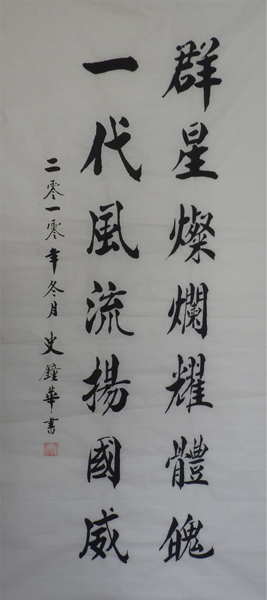 群星燦爛耀體魄
一代風流揚國威
二零一零年冬月 史鐘華書